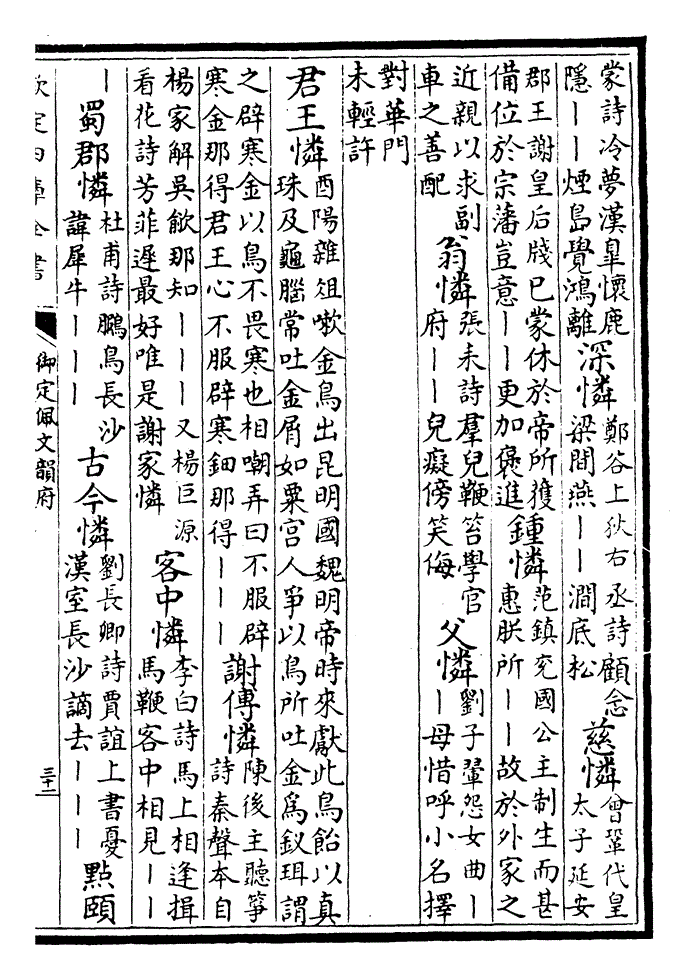 蒙詩冷夢漢臯懷鹿
隱丨丨煙島覺鴻離
深憐
鄭谷上狄右丞詩顧念
梁間燕丨丨澗底松
慈憐
曾鞏代皇
太子延安
郡王謝皇后牋已蒙休於帝所獲
備位於宗藩豈意丨丨更加襃進
鍾憐
范鎮兖國公主制生而甚
惠朕所丨丨故於外家之
近親以求副
車之善配
翁憐
張耒詩羣兒鞭笞學官
府丨丨兒癡傍笑侮
父憐
劉子翬怨女曲丨
丨母惜呼小名擇
對華門
未輕許
君王憐
酉陽雜俎嗽金鳥出昆明國魏明帝時來獻此鳥飴以真
珠及龜腦常吐金屑如粟宫人爭以鳥所吐金爲釵珥謂
之辟寒金以鳥不畏寒也相嘲弄曰不服辟
寒金那得君王心不服辟寒鈿那得丨丨丨
謝傅憐
陳後主聽箏
詩秦聲本自
楊家解吳歈那知丨丨丨又楊巨源
看花詩芳菲遲最好唯是謝家憐
客中憐
李白詩馬上相逢揖
馬鞭客中相見丨丨
丨
蜀郡憐
杜甫詩鵩鳥長沙
諱犀牛丨丨丨
古今憐
劉長卿詩賈誼上書憂
漢室長沙謫去丨丨丨
點頤
欽定四庫全書
御定佩文韻府
三十二